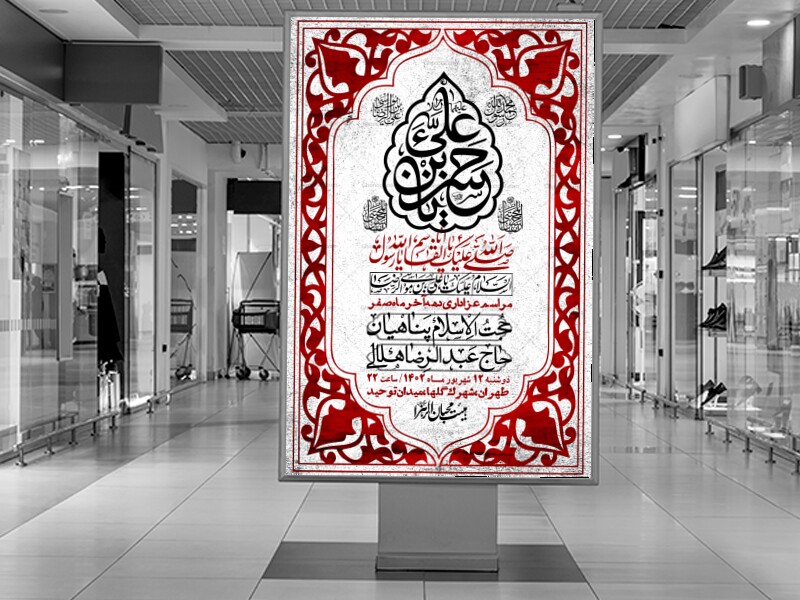 یا حسن بن علی
صلی الله علیک یا اباالقاسم یا رسول الله
السلام علیک یا علی بن موسی الرضا
مراسم عزاداری دهه آخر ماه صفر
حجت الاسلام پناهیان
حاج عبدالرضا هلالی
دوشنبه ۱۲ شهریور ماه ۱۴۰۲ / ساعت ۲۲
طهران، شهرک گلها، میدان توحید
هیئت محبان الزهرا